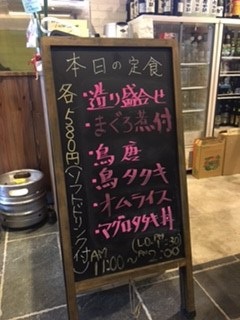 本日の定食
・造り盛合せ
・まぐろ煮付
・鳥唐
・鳥タタキ
・オムライス
・マグロタタキ丼
各580円(ソフトドリンク付)
AM 11:00〜PM2:00